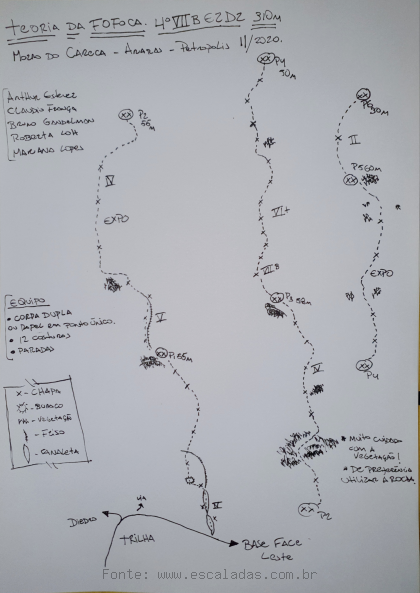 TEORIA DA FOFOCA. 4º VIIB E2D2 310m
MORRO DO CARECA - ARARAS - PETRÓPOLIS 11/2020.
CLAUDIO FRANÇA
BRUNO
ROBERTA
MARIANO LOPES
P4
30m
P2
55m
II
IV
EXPO
VI+
VIIB
P3 52m
P5 60m
EXPO
P4
EQUIPO
• CORDA DUPLA
OU PAPEL EM PONTO ÚNICO.
• 12 COSTURAS
• PARADAS
V
P1 55m
IV
X - CHAPA
- BURACO
- VEGETAÇÃO
- CANALETA
* MUITO CUIDADO
COM A
VEGETAÇÃO!
* DE PREFERÊNCIA
UTILIZAR A ROCHA
P2
DIEDRO
TRILHA
BASE FACE
LESTE
Fonte: www.escaladas.com.br